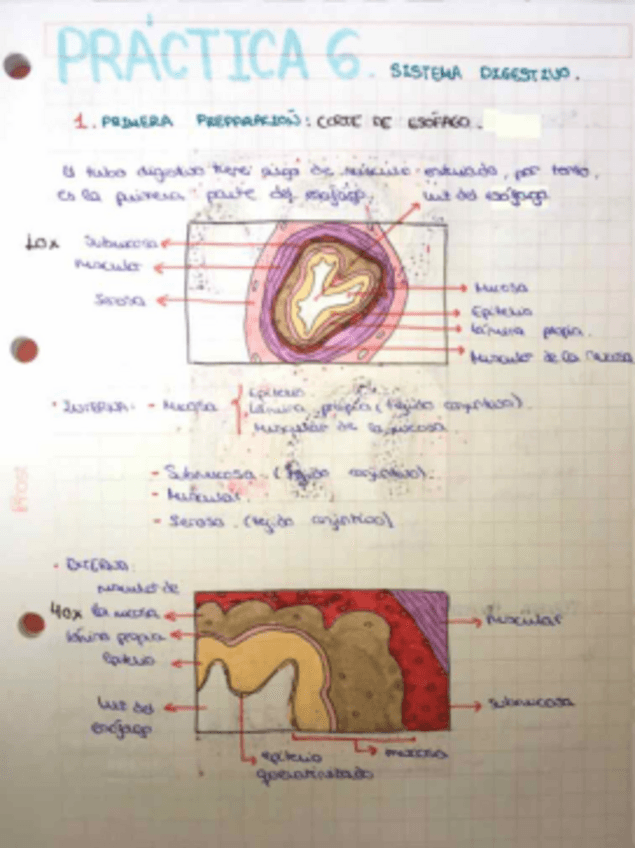 PRÁCTICA 6. SISTEMA DIGESTIVO.
1. PRIMERA PREPARACIÓN: CORTE DE ESÓFAGO.
El tubo digestivo tiene algo de músculo estriado, por tanto,
es la primera parte del esófago.
luz del esófago
10x
Submucosa
Muscular
Serosa
Mucosa
Epitelio
lámina propia.
Muscular de la mucosa
• INTERNA: - Mucosa
Epitelio
lámina propia (tejido conjuntivo).
Muscular de la mucosa.
- Submucosa. (tejido conjuntivo).
- Muscular.
- Serosa. (tejido conjuntivo)
• EXTERNA:
40x
muscular de
la mucosa
lámina propia
Epitelio
luz del
esófago
muscular
submucosa
mucosa
epitelio
queratinizado